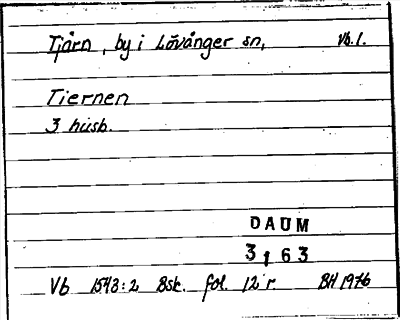 Tjårn, by i Lövånger sn, Vb. l.
Tiernen
3 husb.
DAUM
3163
Vb 1543:2 Bsk. fol. 12 r BH 1976